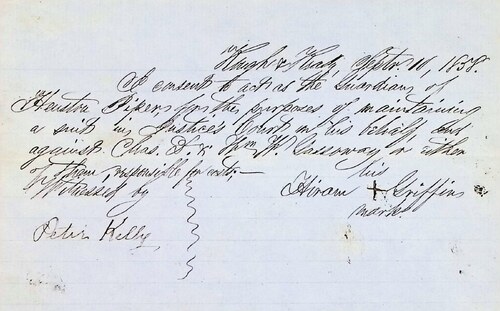 Hugh & Keady, Septr 10, 1858.
I consent to act as the Guardian of
Houston Pipers, for the purposes of maintaining
a suit in Justices Court in his behalf and
against Chas. D. & Wm. W. Gassoway or either
of them, responsible for costs,—
Witnessed by his
Hiram + Griffins
mark
Peter Kelly